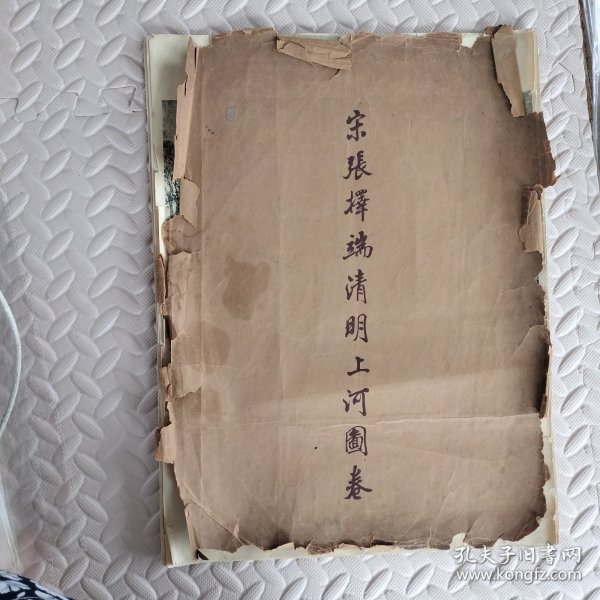 宋張擇端清明上河圖卷
孔夫子旧书网
www.kongfz.com